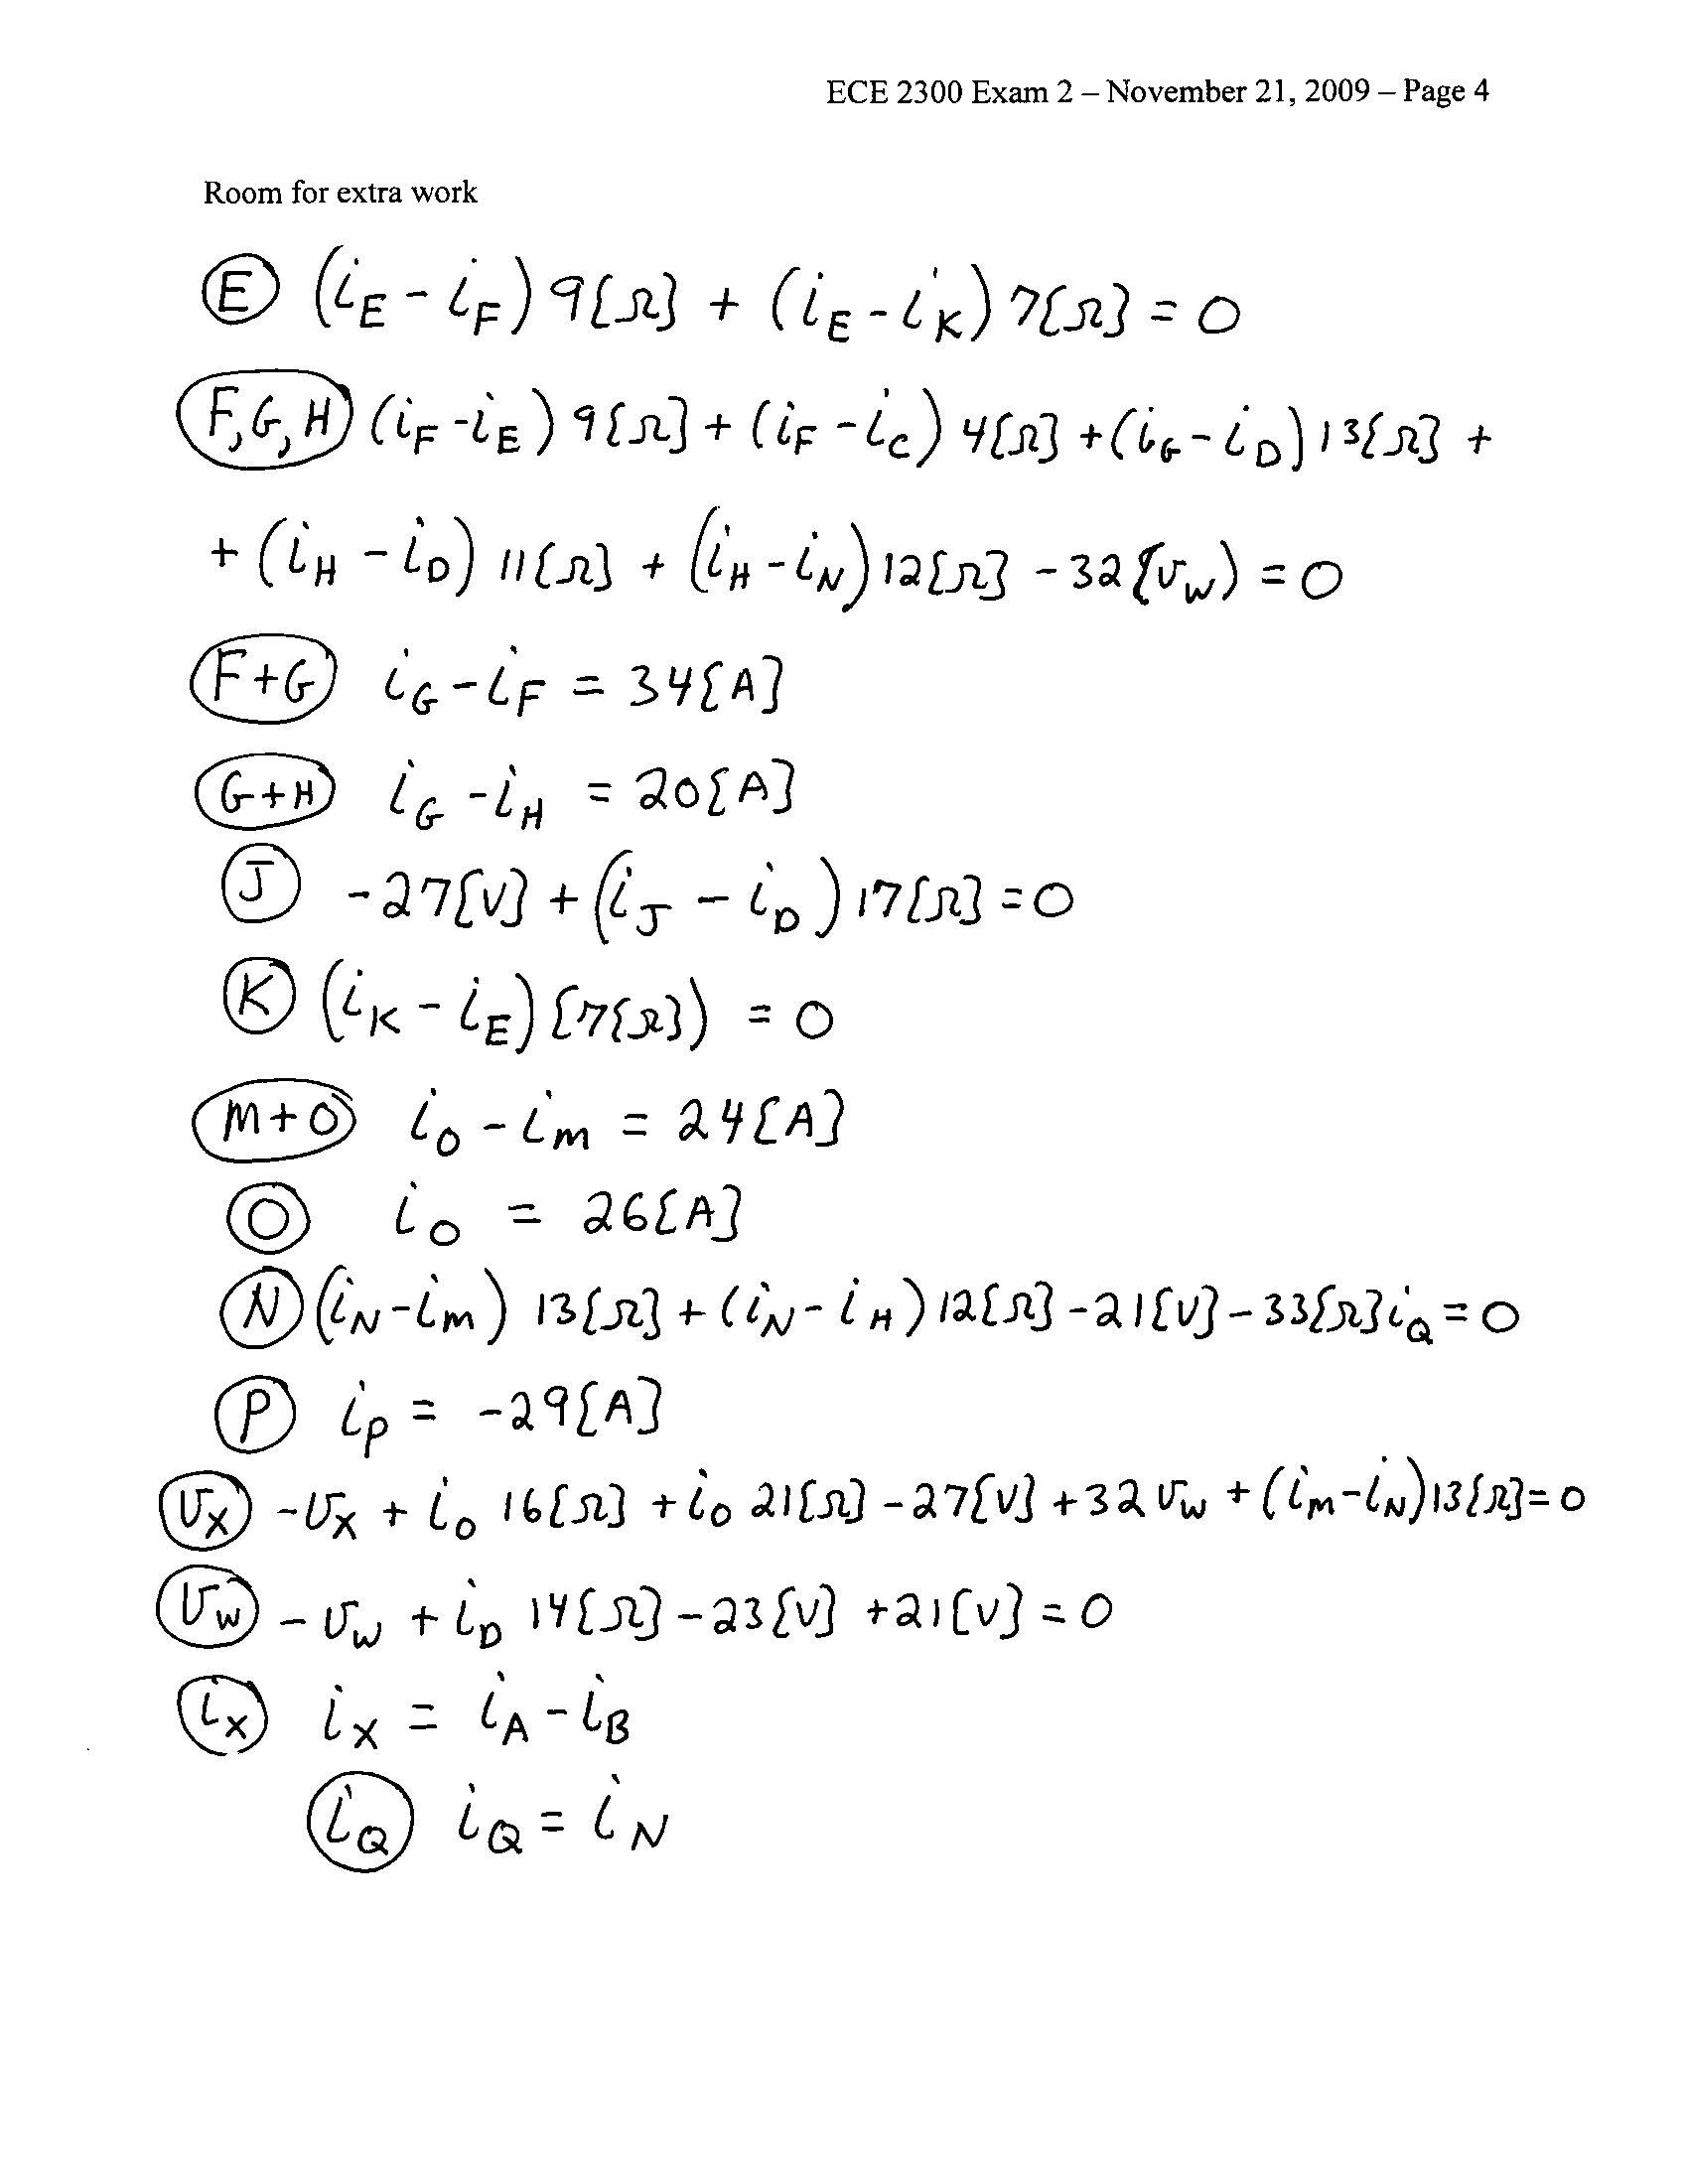 ECE 2300 Exam 2 – November 21, 2009 – Page 4
Room for extra work
E (iE - iF) 9[Ω] + (iE - iK) 7[Ω] = 0
F,G,H (iF - iE) 9[Ω] + (iF - iC) 4[Ω] + (iG - iD) 13[Ω] +
+ (iH - iD) 11[Ω] + (iH - iN) 12[Ω] - 32(vW) = 0
F+G iG - iF = 34[A]
G+H iG - iH = 20[A]
J -27[V] + (iJ - iD) 17[Ω] = 0
K (iK - iE) (7[Ω]) = 0
M+O iO - iM = 24[A]
O iO = 26[A]
N (iN - iM) 13[Ω] + (iN - iH) 12[Ω] - 21[V] - 33[Ω] iQ = 0
P iP = -29[A]
vX -vX + iO 16[Ω] + iO 21[Ω] - 27[V] + 32 vW + (iM - iN) 13[Ω] = 0
vW -vW + iD 14[Ω] - 23[V] + 21[V] = 0
iX iX = iA - iB
iQ iQ = iN